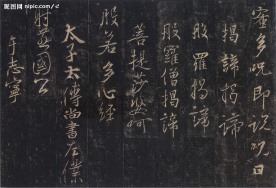 昵图网
蜜多呪即說呪曰
揭諦揭諦
般羅揭諦
般羅僧揭諦
菩提莎婆呵
般若多心經
太子太傅尚書左僕
射燕國公
于志寧